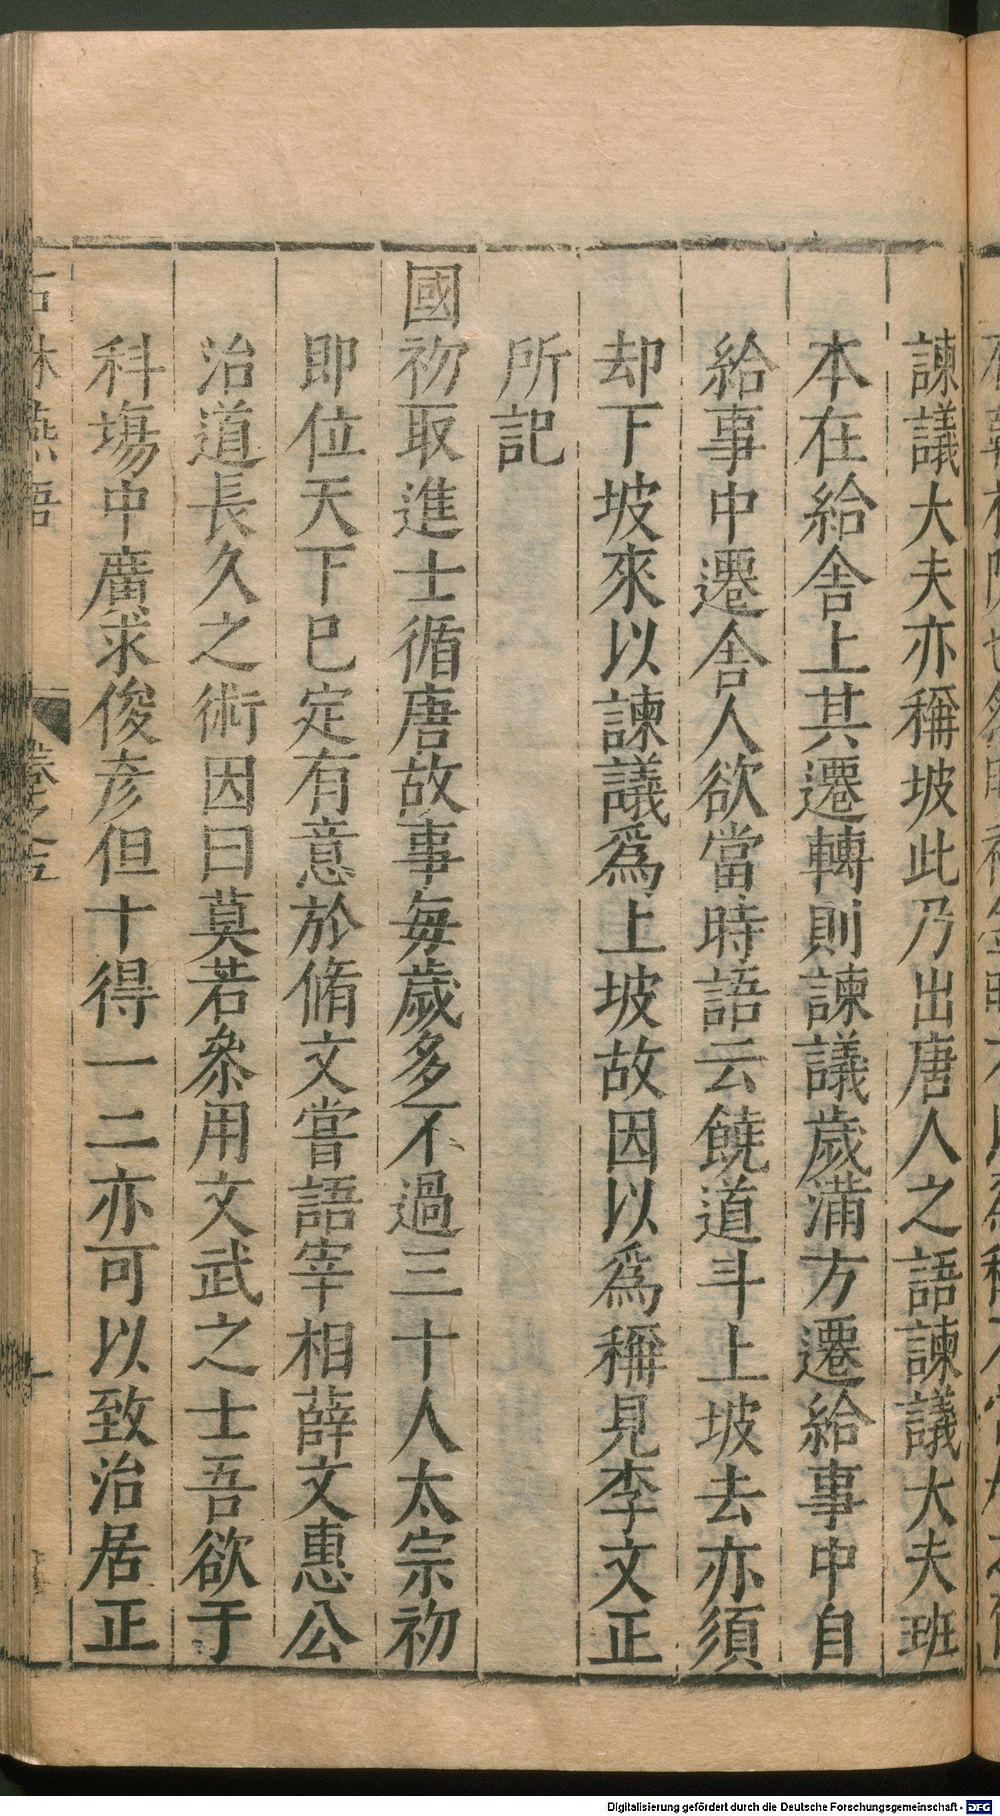 諫議大夫亦稱坡此乃出唐人之語諫議大夫班
本在給舎上其遷轉則諫議歲滿方遷給事中自
給事中遷舎人欲當時語云饒道斗上坡去亦須
却下坡來以諫議爲上坡故因以爲稱見李文正
所記
國初取進士循唐故事每歲多不過三十人太宗初
即位天下已定有意於脩文嘗語宰相薛文惠公
治道長久之術因曰莫若叅用文武之士吾欲于
科塲中廣求俊彦但十得一二亦可以致治居正
石林燕語
卷之五
十
Digitalisierung gefördert durch die Deutsche Forschungsgemeinschaft - DFG